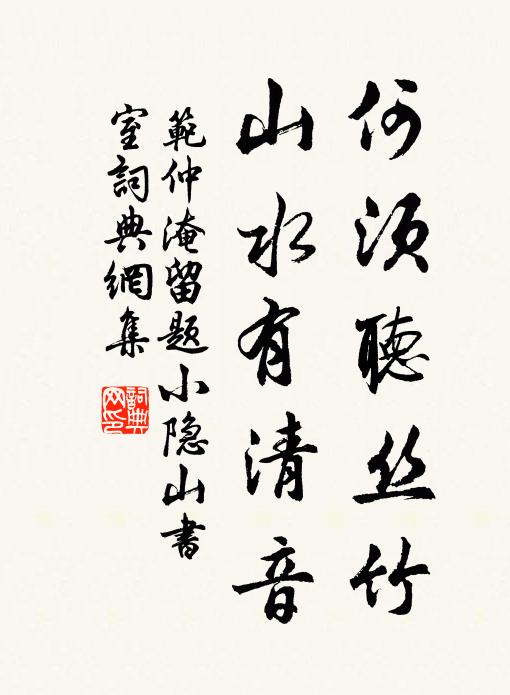 何须聽丝竹
山水有清音
範仲淹留题小隐山書
室詞典網集
詞典网印